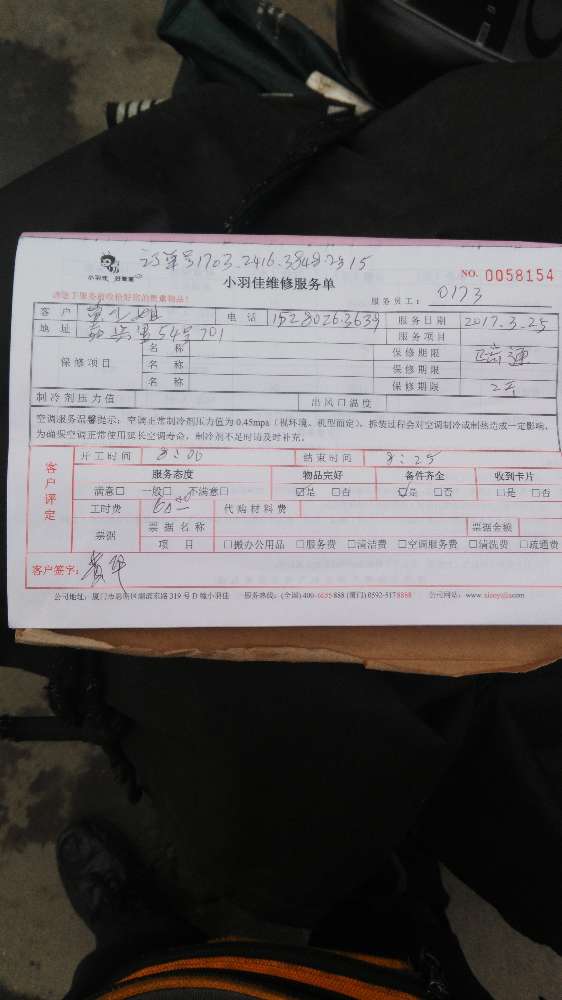 订单号1703.2416.3848.2815
小羽佳 好管家
小羽佳维修服务单
NO. 0058154
服务员工: 0173
客户 小姐 电话 15280263639 服务日期 2017.3.25
地址 54号701 服务项目
保修项目 名称 保修期限
名称 保修期限
名称 保修期限
制冷剂压力值 出风口温度
空调服务温馨提示: 空调正常制冷剂压力值为0.45mpa(视环境、机型而定)、拆装过程会对空调制冷或制热造成一定影响,
为确保空调正常使用延长空调寿命, 制冷剂不足时请及时补充。
客户评定
开工时间 8:00 结束时间 8:25
服务态度 物品完好 备件齐全 收到卡片
满意□ 一般□ 不满意□ ☑是 □否 ☑是 □否 □是 □否
工时费 代购材料费
票据 票据名称 票据金额
项目 □搬办公用品 □服务费 □清洁费 □空调服务费 □清洗费 □疏通费
客户签字:
公司地址: 厦门市思明区湖滨东路319号D幢小羽佳 服务热线: (全国) 400-1656-888 (厦门) 0592-5178888 公司网站: www.xiaoyujia.com